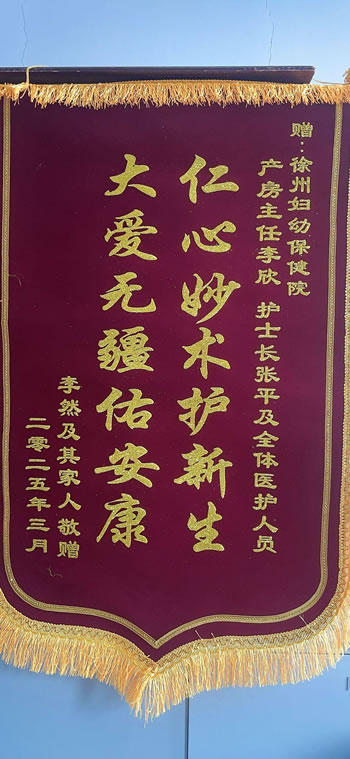 赠：徐州妇幼保健院
产房主任李欣 护士长张平及全体医护人员
仁心妙术护新生
大爱无疆佑安康
李然及其家人敬赠
二零二五年三月